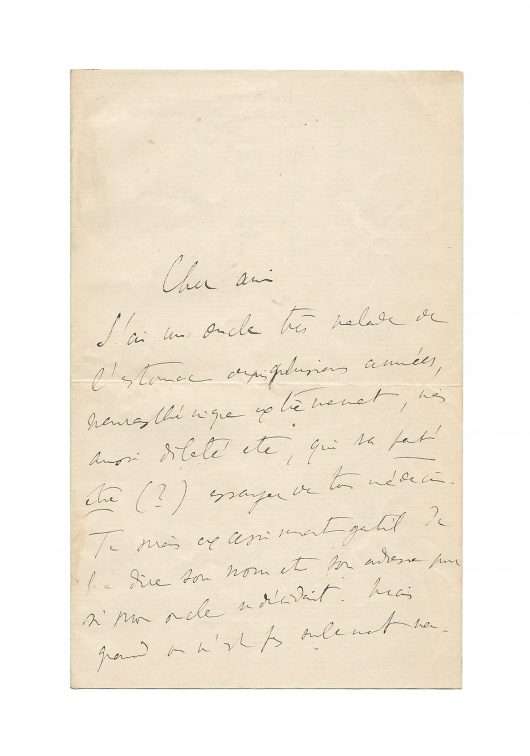 Cher ami
J'ai un oncle très malade de
l'estomac depuis plusieurs années,
neurasthénique extrêmement, mais
aussi dilaté etc, qui va peut
être (?) essayer de ton médecin.
Tu serais excessivement gentil de
me dire son nom et son adresse pour
si mon oncle se décidait. Mais
quand on n'est pas seulement